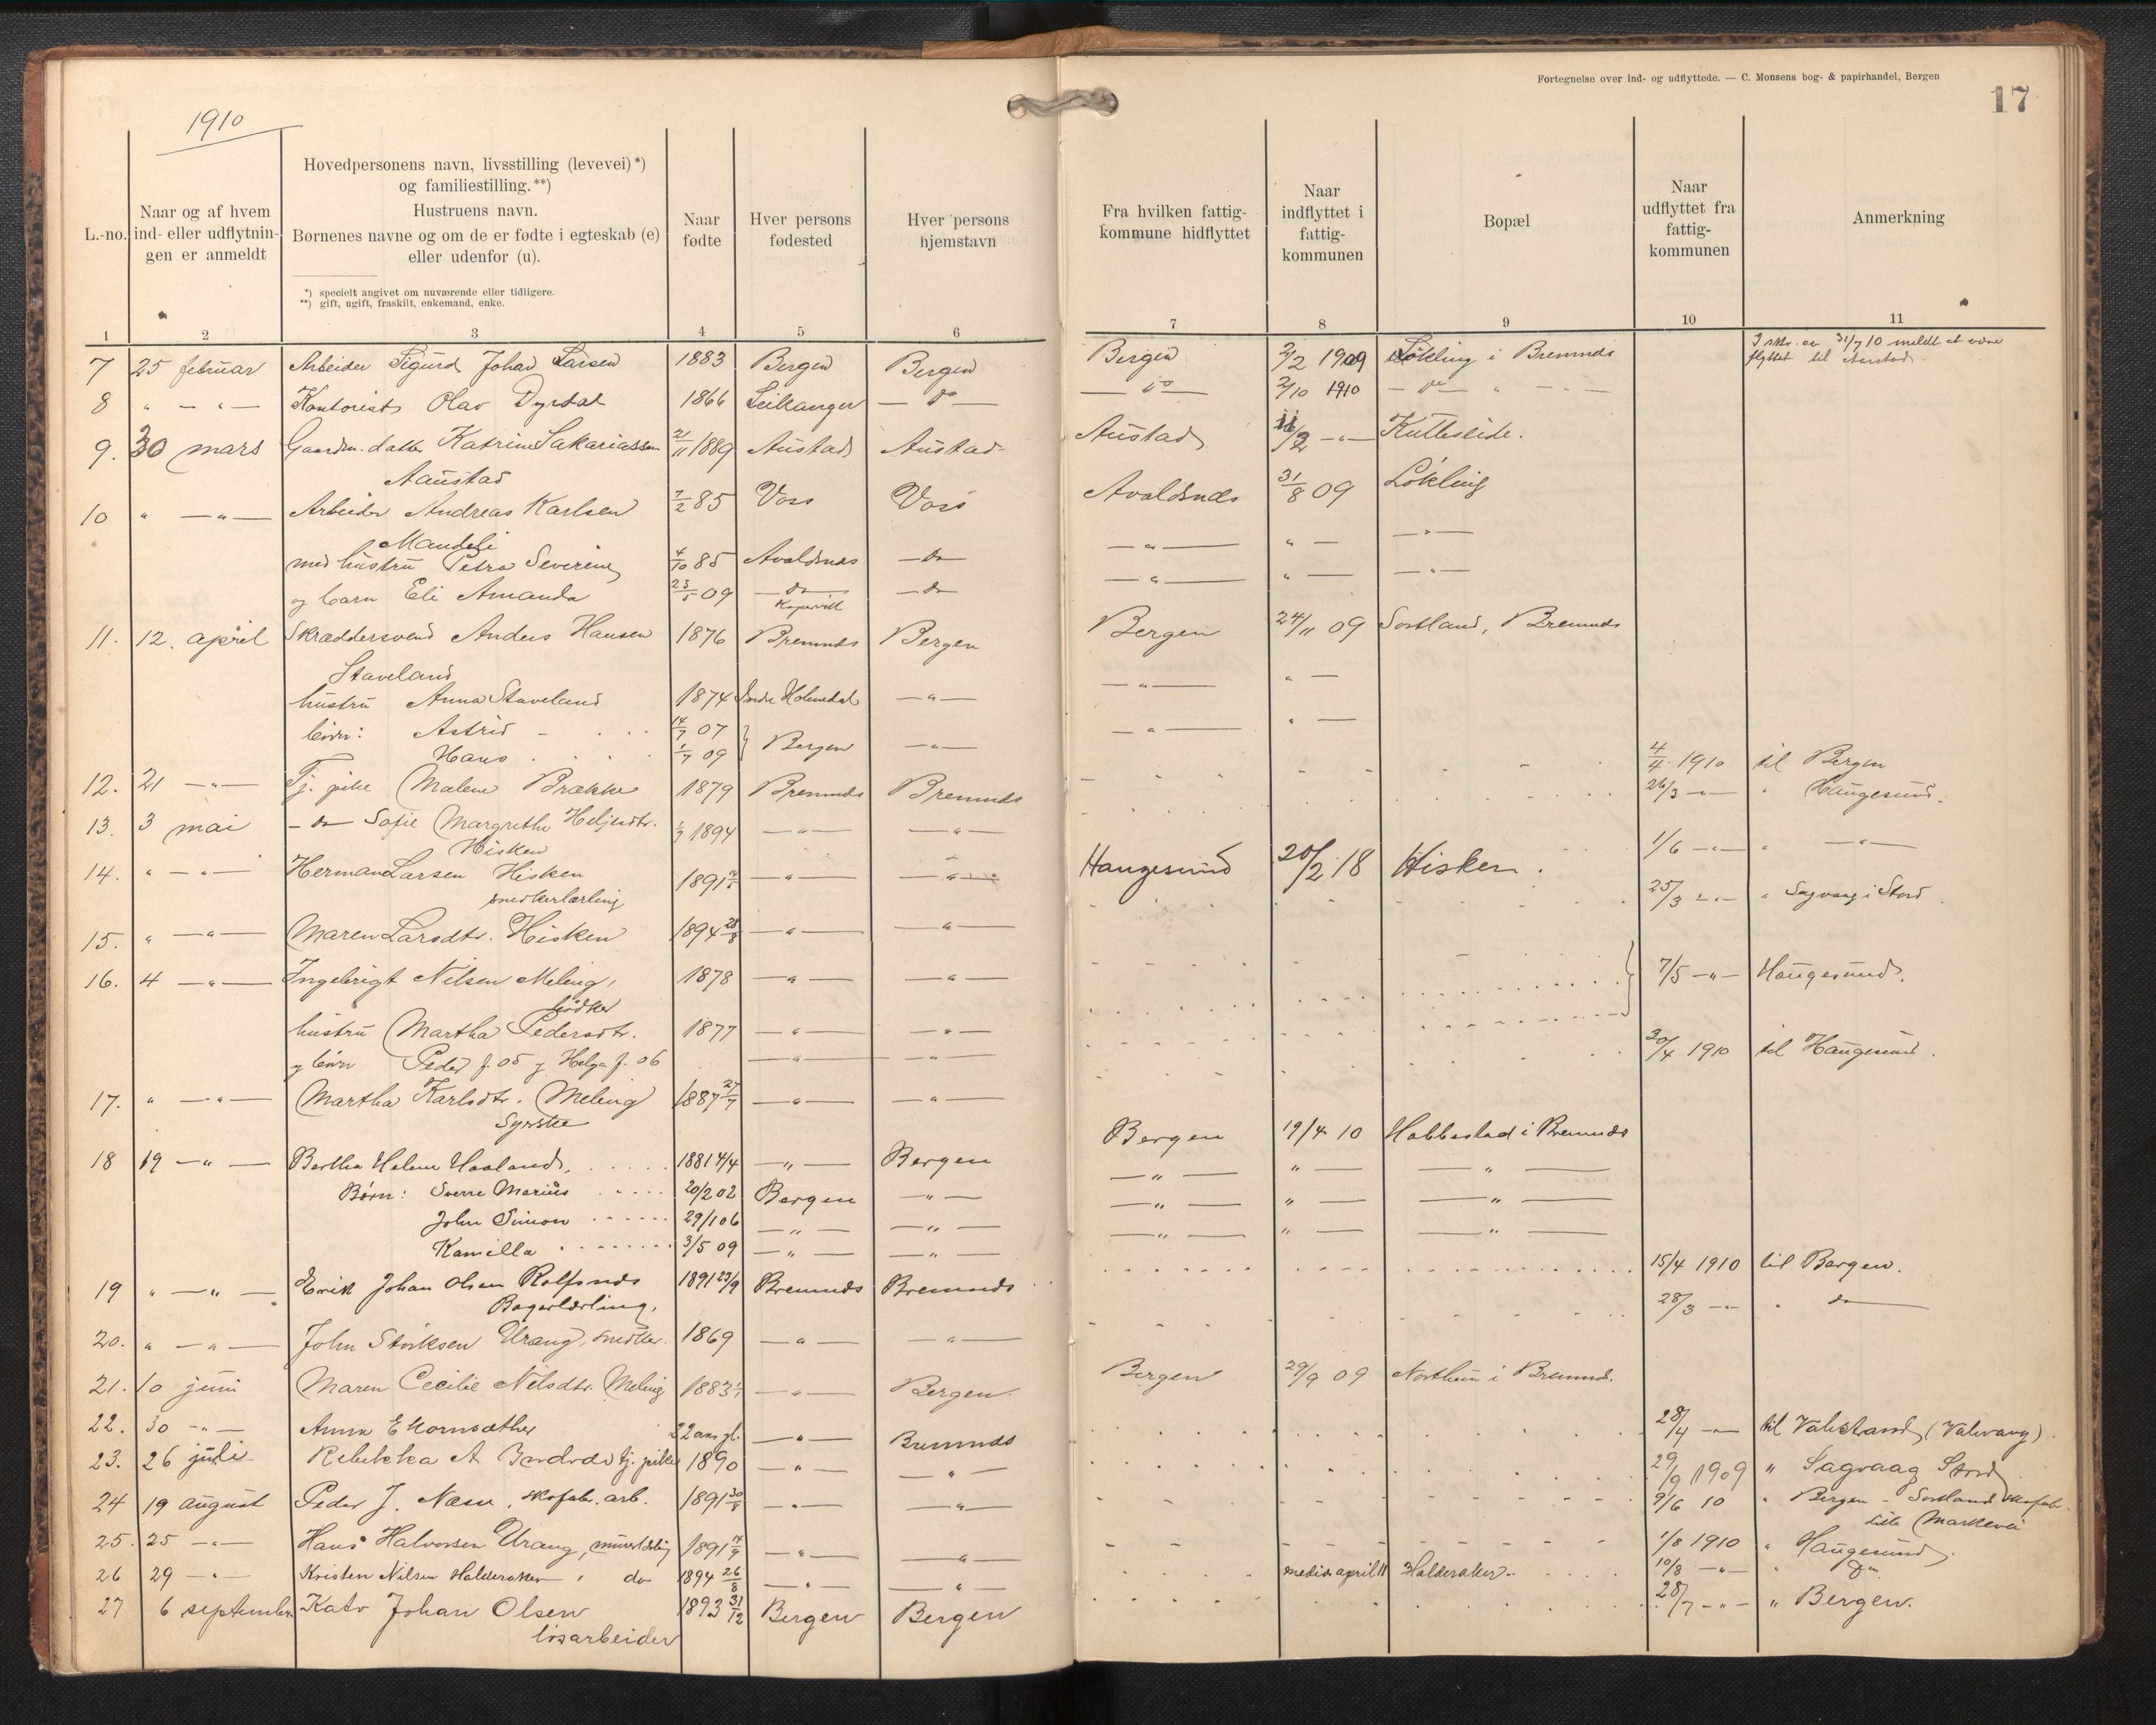 Fortegnelse over ind- og udflyttede. — C. Monsens bog- & papirhandel, Bergen
17
1910
L.-no.
Naar og af hvem
ind- eller udflytnin-
gen er anmeldt
Hovedpersonens navn, livsstilling (levevei)*)
og familiestilling.**)
Hustruens navn.
Børnenes navne og om de er fødte i egteskab (e)
eller udenfor (u).
*) specielt angivet om nuværende eller tidligere.
**) gift, ugift, fraskilt, enkemand, enke.
Naar
fødte
Hver persons
fødested
Hver persons
hjemstavn
Fra hvilken fattig-
kommune hidflyttet
Naar
indflyttet i
fattig-
kommunen
Bopæl
Naar
udflyttet fra
fattig-
kommunen
Anmerkning
1 2 3 4 5 6 7 8 9 10 11
7 25 februar Arbeider Sigurd Johan Larsen 1883 Bergen Bergen Bergen 2/2 1909 Løkling i Bremnes 31/7 10 meldt at være
flyttet til Aarstad
8 " — " — Kontorist Olav Dyrdal 1866 Leikanger — do — — do — 2/10 1910 — do — " — —
9. 30 mars Gaardm. datter Katrine Sakariassen 21/11 1889 Austad Austad Austad /2 — " — Kulleseide.
Aaustad
10 " — " — Arbeider Andreas Karlsen 7/2 85 Voss Voss Avaldsnes 31/8 09 Løkling
Mandeli
med hustru Petra Severine 4/10 85 Avaldsnes — do — — " — " — — " —
og barn Eli Amanda 23/5 09 — do — — do — — " — " — — " —
Kopervik
11. 12. april Skræddersvend Anders Hansen 1876 Bremnes Bergen Bergen 24/11 09 Sortland, Bremnes
Staveland
hustru Anna Staveland 1874 Indre Holmedal — " — — " — " —
børn: Astrid 14/7 07 } Bergen — " — — " — " —
Hans 1/7 09
12. 21 — " — Tj. pike Malene Brække 1879 Bremnes Bremnes 4/4 1910 til Bergen
13. 3 mai — do — Sofie Margrethe Heljesdtr. 1/7 1894 — " — — " — 26/3 — " — " Haugesund.
Hisken
14. " — " — Herman Larsen Hisken 1891 — " — — " — Haugesund 20/2 18 Hisken. 1/6 — " — " — " —
snedkerlærling
15. " — " — Maren Larsdtr. Hisken 1894 28/8 — " — — " — 25/3 — " — " Sagvaag i Stord
16. 4 — " — Ingebrigt Nilsen Meling, 1878 — " — — " — } 7/5 — " — Haugesund.
bødker
hustru Martha Pedersdtr. 1877 — " — — " —
og børn Peder f. 05 og Helga f. 06 — " — — " —
17. " — " — Martha Karlsdtr. Meling 1887 27/7 — " — — " — 30/4 1910 til Haugesund.
Syerske
18 19 — " — Bertha Helene Haaland. 1881 4/4 — " — Bergen Bergen 19/4 10 Habbestad i Bremnes
Børn: Sverre Marius 20/2 02 Bergen — " — — " — " — — " —
John Simon 29/1 06 — " — — " — — " — " — — " —
Kamilla 3/5 09 — " — — " — — " — " — — " —
19 " — " — Erik Johan Olsen Rolfsnes 1891 23/9 Bremnes Bremnes 15/4 1910 til Bergen.
Bagerlærling,
20. " — " — John Størksen Urang, snedker. 1869 — " — — " — 28/3 — " — " do
21. 10 juni Maren Cecilie Nilsdtr. Meling 1883 — " — Bergen. Bergen 29/9 09 Northun i Bremnes.
22. 30 — " — Anna E Hornsæther 22 aar gl. — " — Bremnes 28/4 — " — til Valestrand (Valevaag).
23. 26 juli Rebekka A Indrdr tj. pike 1890 — " — — " — 29/9 1909 " Sagvaag Stord
24 19 august Peder J. Næse, skofabr. arb. 1891 30/8 — " — — " — 9/6 10 " Bergen - Sortland skofabr.
Lille Markevei
25. 25 — " — Hans Halvorsen Urang, murerlærling 1891 14/9 — " — — " — 1/8 1910 " Haugesund.
26 29 — " — Kristen Nilsen Halderaker " do 1894 26/8 — " — — " — medio april 11 Halderaker. 10/8 — " — do.
27 6 september Kato Johan Olsen 1893 31/12 Bergen Bergen 28/7 — " — " Bergen.
løsarbeider